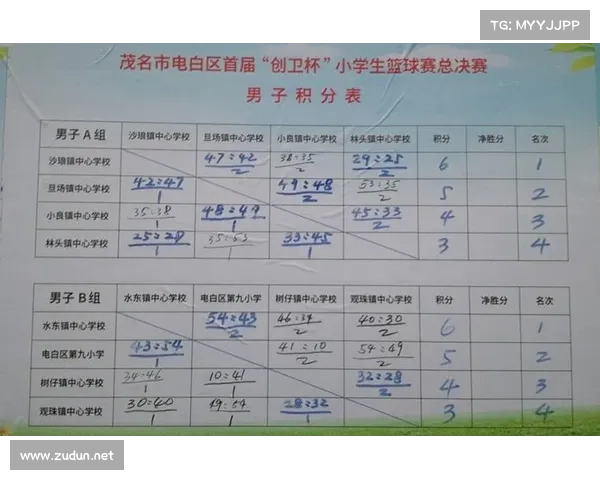 TG: MYYJJPP
茂名市电白区首届“创卫杯”小学生篮球赛总决赛
男子积分表
男子A组 沙琅镇中心学校 旦场镇中心学校 小良镇中心学校 林头镇中心学校 积分 净胜分 名次
沙琅镇中心学校 47:42 2 38:35 2 29:25 2 6 1
旦场镇中心学校 42:47 1 49:48 2 53:35 2 5 2
小良镇中心学校 35:38 1 48:49 1 45:33 2 4 3
林头镇中心学校 1 35:53 1 33:45 1 3 4
男子B组 水东镇中心学校 电白区第九小学 树仔镇中心学校 观珠镇中心学校 积分 净胜分 名次
水东镇中心学校 54:43 2 46:34 2 40:30 2 6 1
电白区第九小学 43:54 1 41:10 2 54:49 2 5 2
树仔镇中心学校 34:46 1 10:41 1 32:28 2 4 3
观珠镇中心学校 30:40 1 49:54 1 28:32 1 3 4
www.zudun.net